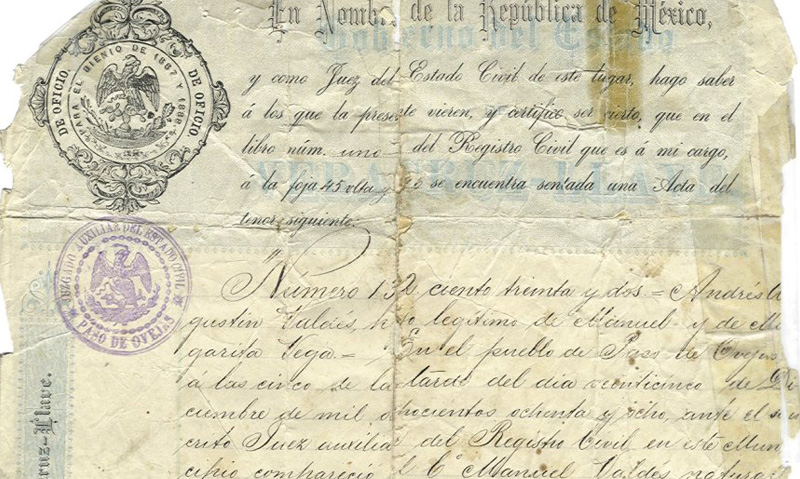 En Nombre de la República de México,
Gobierno del Estado
DE OFICIO.
PARA EL BIENIO DE 1887 Y 1888
DE OFICIO
y como Juez del Estado Civil de este lugar, hago saber
á los que la presente vieren, y certifico ser cierto, que en el
libro núm. uno del Registro Civil que es á mi cargo,
á la foja 45 vlta y se encuentra sentada una Acta del
tenor siguiente.
JUZGADO AUXILIAR DEL ESTADO CIVIL
PASO DE OVEJAS
Número 132 ciento treinta y dos = Andrés
gustin Valdés, legitimo de Manuel y de
garita Vega = En el pueblo de Paso de Ovejas
á las cinco de la tarde del dia veinticinco de Di
ciembre de mil ochocientos ochenta y ocho, ante el sus
crito Juez auxiliar del Registro Civil en este Muni
cipio compareció el C. Manuel Valdes natural
ruz-Llave.